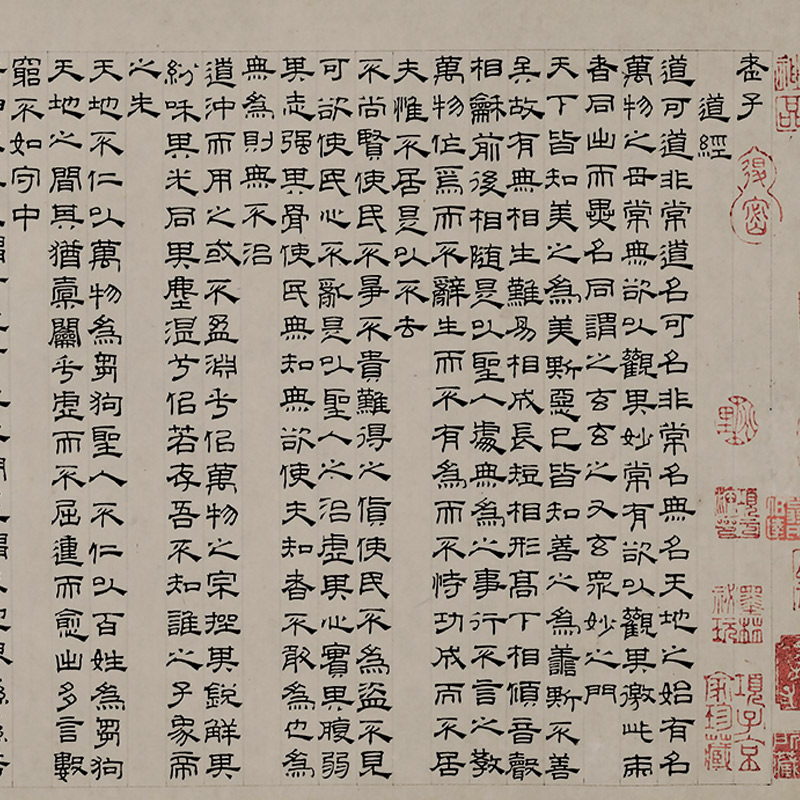 老子
道經
道可道非常道名可名非常名無名天地之始有名
萬物之母常無欲以觀其妙常有欲以觀其徼此兩
者同出而異名同謂之玄玄之又玄眾妙之門
天下皆知美之為美斯惡已皆知善之為善斯不善
矣故有無相生難易相成長短相形高下相傾音聲
相龢前後相隨是以聖人處無為之事行不言之教
萬物作焉而不辭生而不有為而不恃功成而不居
夫惟不居是以不去
不尚賢使民不爭不貴難得之貨使民不為盜不見
可欲使民心不亂是以聖人之治虛其心實其腹弱
其志强其骨使民無知無欲使夫知者不敢為也為
無為則無不治
道沖而用之或不盈淵乎佀萬物之宗挫其銳解其
紛咊其光同其塵湛兮佀若存吾不知誰之子象帝
之先
天地不仁以萬物為芻狗聖人不仁以百姓為芻狗
天地之間其猶橐籥乎虛而不屈運而愈出多言數
窮不如守中
墨林祕玩
項子京家珍藏